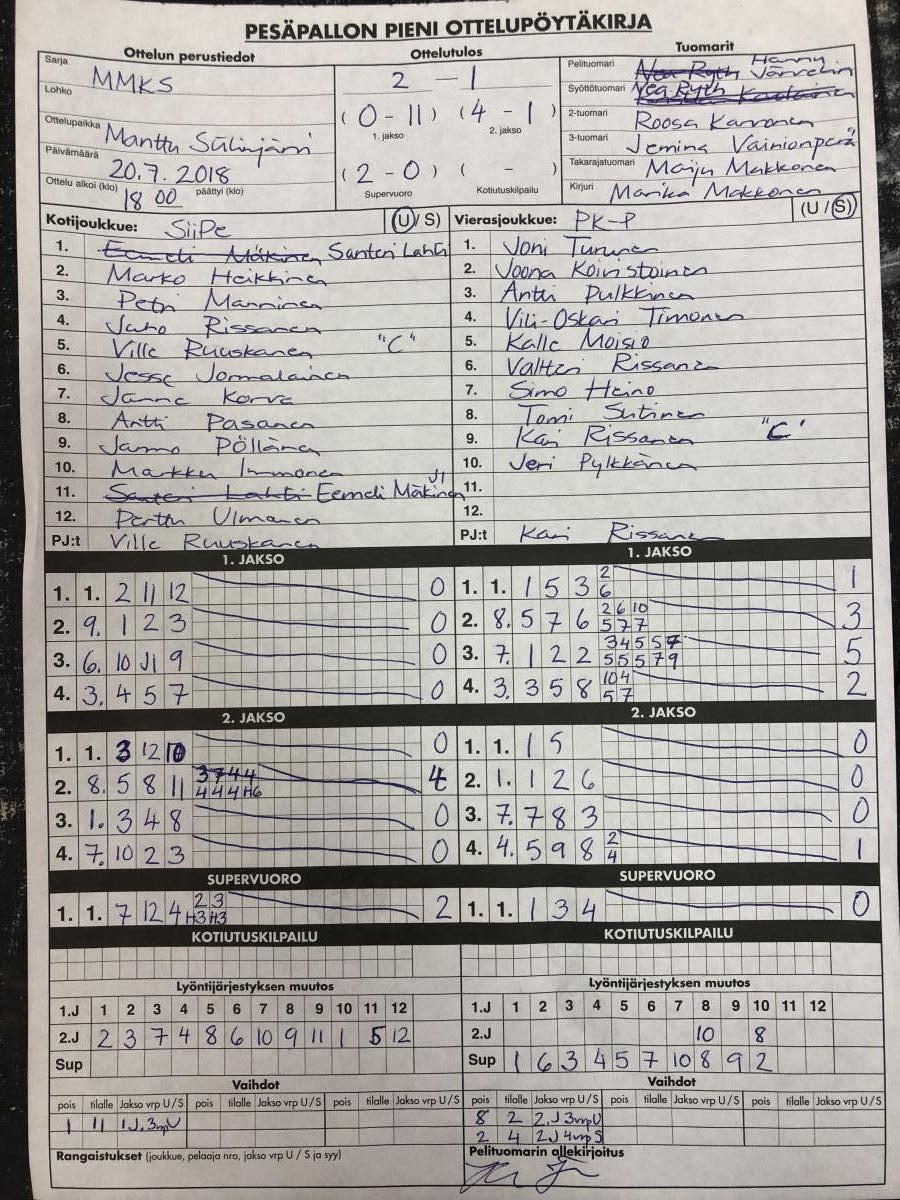 PESÄPALLON PIENI OTTELUPÖYTÄKIRJA
Ottelun perustiedot
Sarja MMKS
Lohko
Ottelupaikka Manttu Siilinjärvi
Päivämäärä 20.7.2018
Ottelu alkoi (klo) 18 00 päättyi (klo)
Ottelutulos
2 - 1
(0 - 11) (4 - 1)
1. jakso 2. jakso
(2 - 0) ( - )
Supervuoro Kotiutuskilpailu
Tuomarit
Pelituomari Nea Ryth Hanny Järvelin
Syöttötuomari Nea Ryth
2-tuomari Roosa Karronen
3-tuomari Jemina Vainionperä
Takarajatuomari Maiju Makkonen
Kirjuri Marika Makkonen
Kotijoukkue: SiiPe (U/S)
1. Eemeli Mäkinen Santeri Lahti
2. Marko Heikkinen
3. Petri Manninen
4. Juho Rissanen
5. Ville Ruuskanen "C"
6. Jesse Jormalainen
7. Janne Korva
8. Antti Pasanen
9. Jarmo Pöllänen
10. Markku Immonen
11. Santeri Lahti Eemeli Mäkinen J1
12. Perttu Ulmanen
PJ:t Ville Ruuskanen
Vierasjoukkue: PK-P (U/S)
1. Joni Turunen
2. Joona Koivistoinen
3. Antti Pulkkinen
4. Vili-Oskari Timonen
5. Kalle Moisio
6. Valtteri Rissanen
7. Simo Heino
8. Tomi Sutinen
9. Kari Rissanen "C"
10. Jeri Pylkkänen
11.
12.
PJ:t Kari Rissanen
1. JAKSO
1. 1. 2 11 12 0
2. 9. 1 2 3 0
3. 6. 10 J1 9 0
4. 3. 4 5 7 0
1. JAKSO
1. 1. 1 5 3 2 1
6
2. 8. 5 7 6 2 6 10 3
5 7 7
3. 7. 1 2 2 3 4 5 5 7 5
5 5 5 7 9
4. 3. 3 5 8 10 4 2
5 7
2. JAKSO
1. 1. 3 12 10 0
2. 8. 5 8 11 3 7 4 4 4
4 4 4 H6
3. 1. 3 4 8 0
4. 7. 10 2 3 0
2. JAKSO
1. 1. 1 5 0
2. 1. 1 2 6 0
3. 7. 7 8 3 0
4. 4. 5 9 8 2 1
4
SUPERVUORO
1. 1. 7 12 4 2 3 2
H3 H3
SUPERVUORO
1. 1. 1 3 4 0
KOTIUTUSKILPAILU
KOTIUTUSKILPAILU
Lyöntijärjestyksen muutos
1.J 1 2 3 4 5 6 7 8 9 10 11 12
2.J 2 3 7 4 8 6 10 9 11 1 5 12
Sup
Lyöntijärjestyksen muutos
1.J 1 2 3 4 5 6 7 8 9 10 11 12
2.J 10 8
Sup 1 6 3 4 5 7 10 8 9 2
Vaihdot
pois tilalle Jakso vrp U/S pois tilalle Jakso vrp U/S pois tilalle Jakso vrp U/S
1 11 1J.3vrpU
Vaihdot
pois tilalle Jakso vrp U/S pois tilalle Jakso vrp U/S pois tilalle Jakso vrp U/S
8 2 2.J 3vrpU
2 4 2J 4vrp S
Rangaistukset (joukkue, pelaaja nro, jakso vrp U / S ja syy)
Pelituomarin allekirjoitus